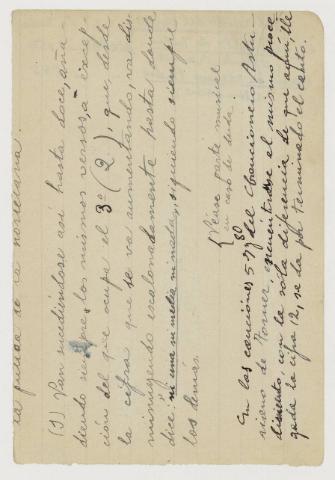 la guinda de la
(1) Van sucediéndose así hasta doce, aña-
diendo siempre los mismos versos, a excep-
ción del que ocupa el 3º (2), que, desde
la cifra que se va aumentando, va dis-
minuyendo escalonadamente hasta donde
dice: "ni una ni media ni nada", siguiendo siempre
los demás.
{Véase parte musical
en caso de duda.
En las canciones 57 y 80 del Cancionero Astu-
riano de Torner, encuéntrase el mismo proce-
dimiento, con la sola diferencia de que aquí, lle-
gada la cifra 12, se da por terminado el canto.